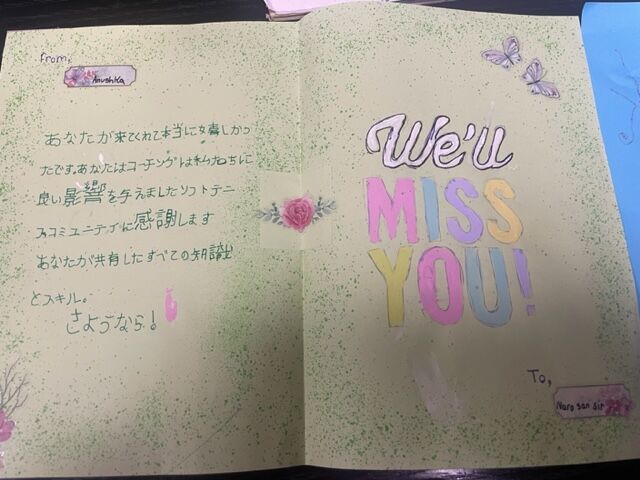 From,
Anushka
あなたが来てくれて本当に嬉しかっ
たです。あなたはコーチングは私たちに
良い影響を与えましたソフトテニ
スコミュニティに感謝します
あなたが共有したすべての知識
とスキル。
さようなら!
We'll
MISS
YOU!
To,
Naro san sir